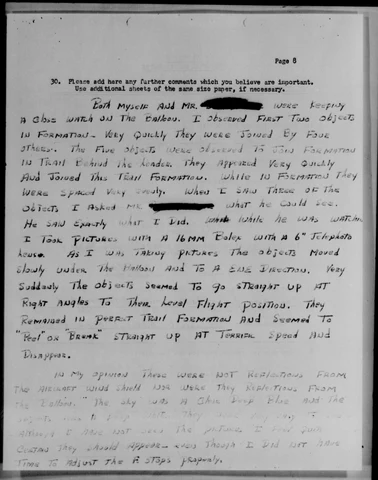 Page 6
30. Please add here any further comments which you believe are important.
Use additional sheets of the same size paper, if necessary.
Both Myself And Mr. were keeping
A Close watch on The Balloon. I observed First Two objects
in Formation - Very Quickly They were Joined By Four
others. The Five objects were observed To Join Formation
in Trail Behind the Leader. They Appeared Very Quickly
And Joined This Trail Formation. While in Formation They
were spaced very evenly. When I saw Three of the
objects I Asked Mr. what he could See.
He Saw Exactly what I Did. While he was watching
I Took Pictures with A 16MM Bolex with A 6" Telephoto
As I was Taking pictures The objects Moved
Slowly under The Balloon And To A Direction. Very
Suddenly The objects Seemed To go Straight up AT
Right Angles to Their Level Flight Position. They
Remained in perfect Trail Formation And Seemed to
"Peel" or "Break" straight up AT Terrific Speed And
Disappear.
In My opinion These were not Reflections From
The Aircraft Wind Shield Nor were They Reflections From
the Balloon. The Sky was A Clear Deep Blue And The
Although I have not seen the picture I feel
Certain They should Appear even Though I Did not have
Time to Adjust the F. Stops properly.